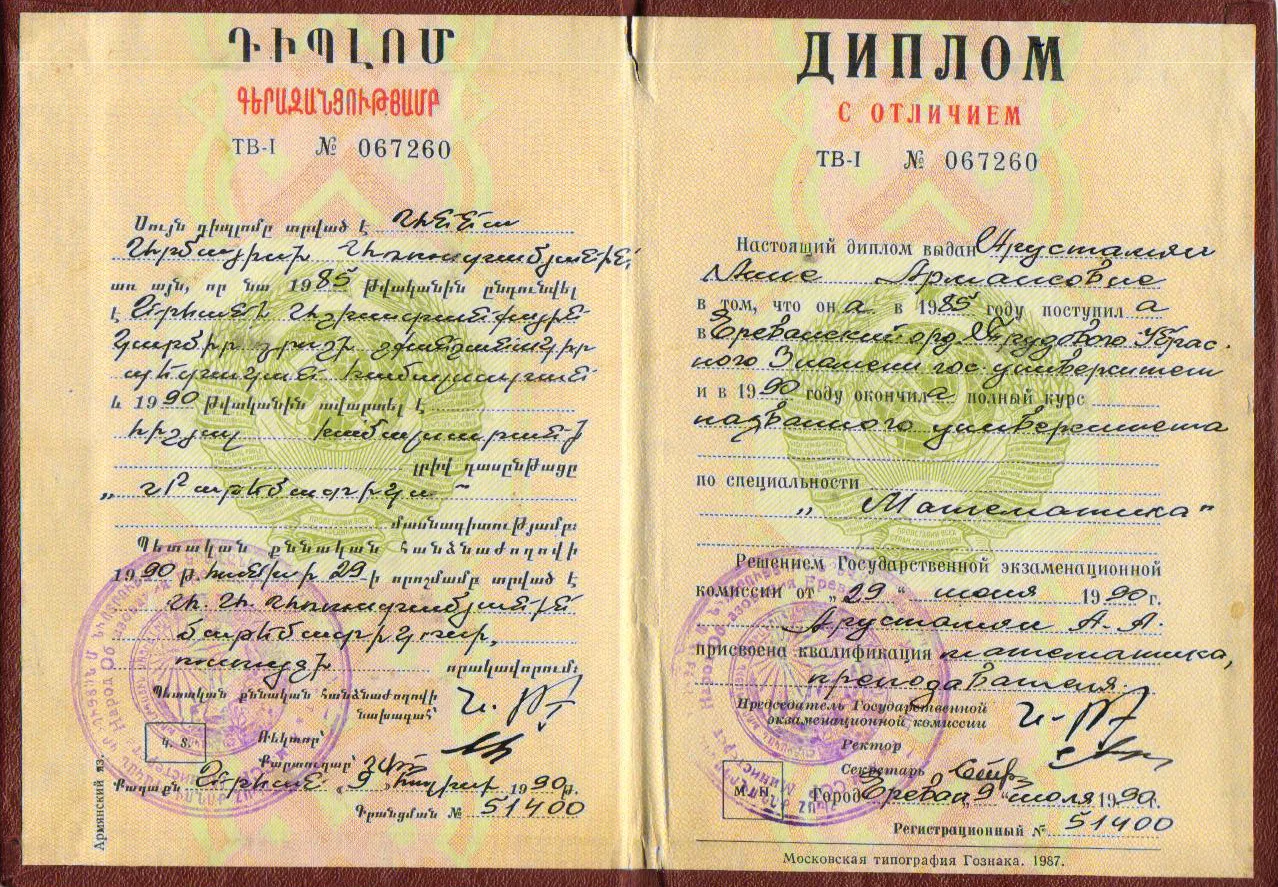 ԴԻՊԼՈՄ
ԳԵՐԱԶԱՆՑՈՒԹՅԱՄԲ
ТВ-I № 067260
Սույն դիպլոմը տրված է Աննա
Արմայիսի Առուստամյանին,
առ այն, որ նա 1985 թվականին ընդունվել
է Երևանի Աշխատանքային
Կարմիր դրոշի շքանշանակիր
պետական համալսարանը
և 1990 թվականին ավարտել է
հիշյալ համալսարանի
լրիվ դասընթացը
„Մաթեմատիկա“
մասնագիտությամբ։
Պետական քննական հանձնաժողովի
1990 թ. հունիսի 29-ի որոշմամբ տրված է
Ա. Ա. Առուստամյանին
մաթեմատիկոսի,
որակավորում։
Պետական քննական հանձնաժողովի
նախագահ՝
Կ. Տ.
Ռեկտոր՝
Քարտուղար՝
Քաղաքն Երևան „9“ հուլիսի 1990թ.
Գրանցման № 51400
Армянский яз.
ДИПЛОМ
С ОТЛИЧИЕМ
ТВ-I № 067260
Настоящий диплом выдан Арустамян
Анне Армаисовне
в том, что она в 1985 году поступила
в Ереванский орд. Трудового Крас-
ного Знамени гос. университет
и в 1990 году окончила полный курс
названного университета
по специальности
„Математика“
Решением Государственной экзаменационной
комиссии от „29“ июня 1990 г.
Арустамян А. А.
присвоена квалификация математика,
преподавателя.
Председатель Государственной
экзаменационной комиссии
Ректор
Секретарь
М. П.
Город Ереван 9 „июля 1990 г.
Регистрационный № 51400
Московская типография Гознака. 1987.